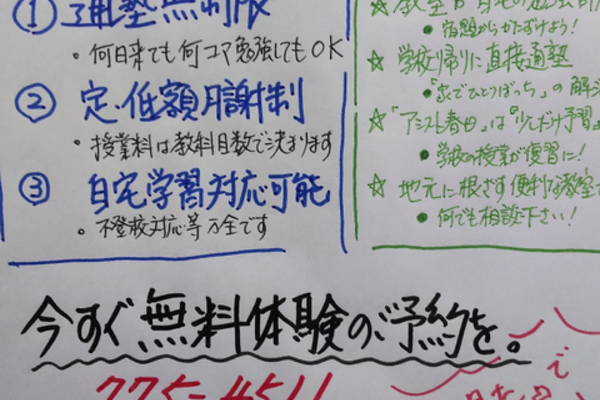 ① 通塾無制限
・何日来ても何コマ勉強してもOK
② 定・低額月謝制
・授業料は教科目数で決まります
③ 自宅学習対応可能
・不登校対応等万全です
● 宿題からかたづけよう!
☆ 学校帰りに直接通塾
● 「家でひとりぼっち」の解消
☆ 「アシスト春日」は『少しだけ予習』
● 学校の授業が復習に!
☆ 地元に根ざす便利な教室で
● 何でも相談下さい!
今すぐ、無料体験のご予約を。
775-4511